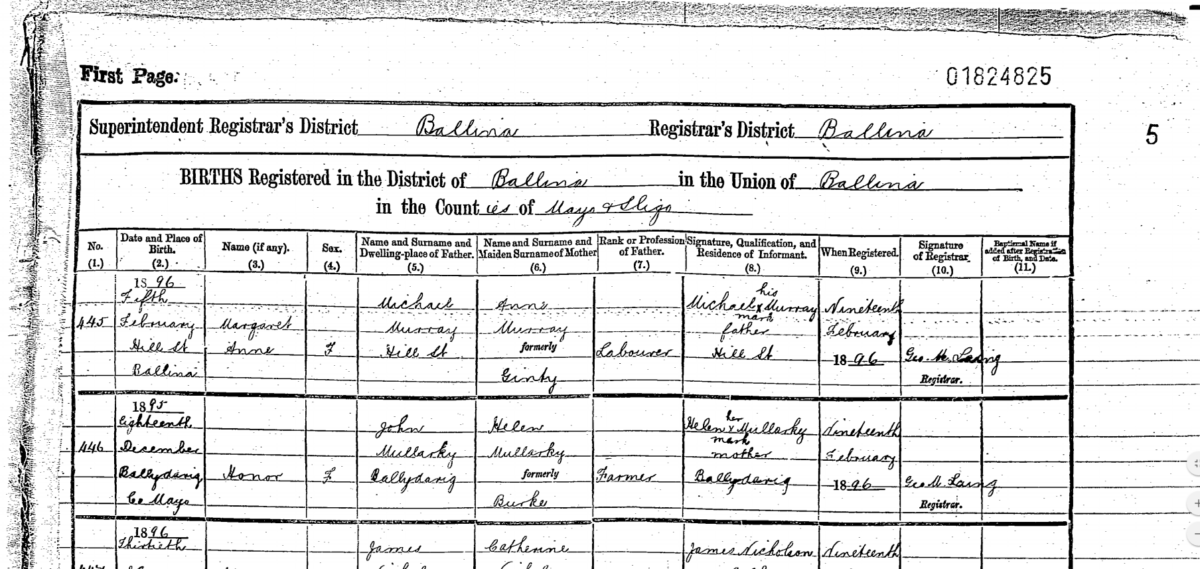 First Page.
01824825
Superintendent Registrar's District Ballina Registrar's District Ballina
5
BIRTHS Registered in the District of Ballina in the Union of Ballina
in the Counties of Mayo & Sligo
No. (1.) Date and Place of Birth. (2.) Name (if any). (3.) Sex. (4.) Name and Surname and Dwelling-place of Father. (5.) Name and Surname and Maiden Surname of Mother (6.) Rank or Profession of Father. (7.) Signature, Qualification, and Residence of Informant. (8.) When Registered. (9.) Signature of Registrar. (10.) Baptismal Name if added after Registration of Birth, and Date. (11.)
1896 his
Fifth Michael Anne Michael x Murray Nineteenth
mark
445 February Margaret Murray Murray father February
Hill St Anne F Hill St formerly Labourer Hill St 1896 Geo. M. Laing
Ballina Ginty Registrar.
1895 her
Eighteenth John Helen Helen x Mullarky Nineteenth
mark
446 December Mullarky Mullarky mother February
Ballydavig Honor F Ballydavig formerly Farmer Ballydavig 1896 Geo M. Laing
Co Mayo Burke Registrar.
1896
Thirtieth James Catherine James Nicholson Nineteenth